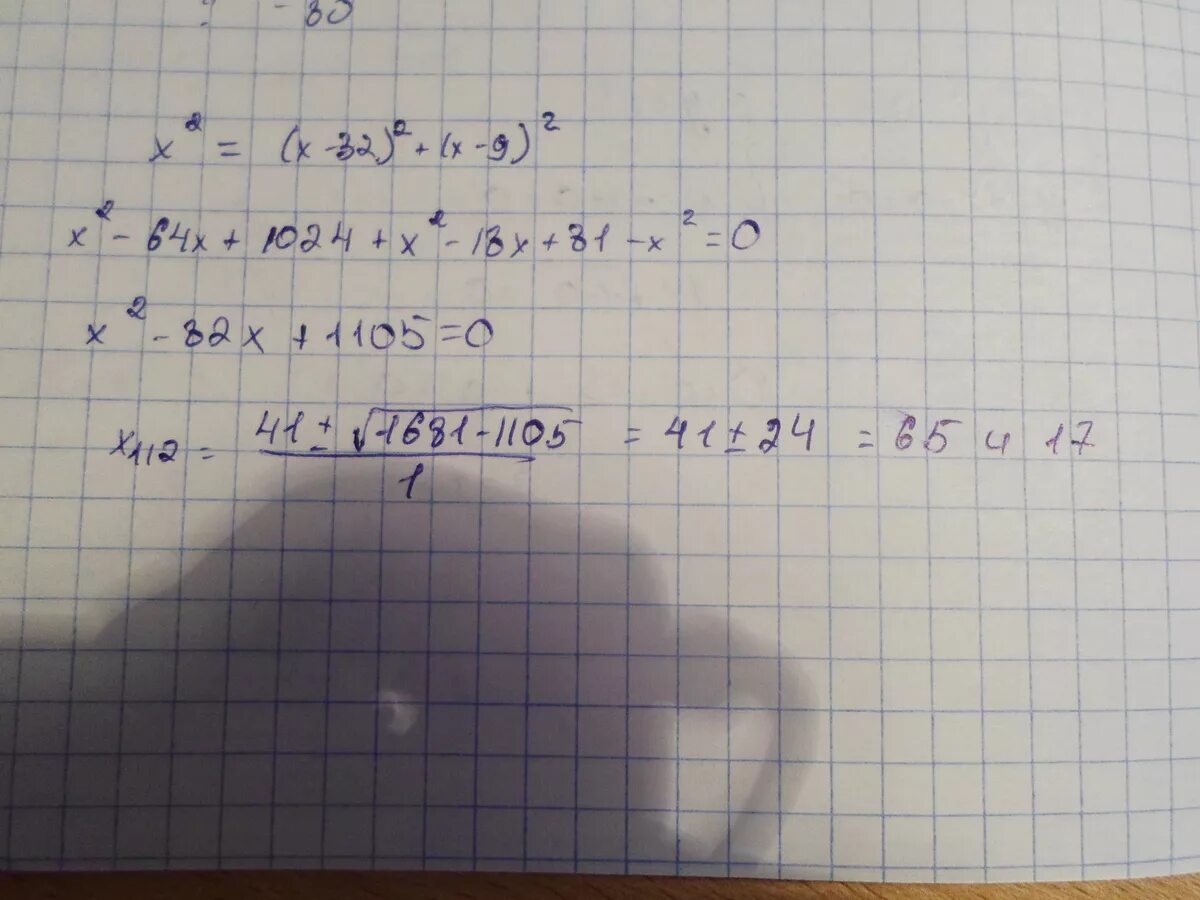 - 80
x² = (x - 32)² + (x - 9)²
x² - 64x + 1024 + x² - 18x + 81 - x² = 0
x² - 82x + 1105 = 0
x₁,₂ = (41 ± √(1681 - 1105)) / 1 = 41 ± 24 = 65 и 17